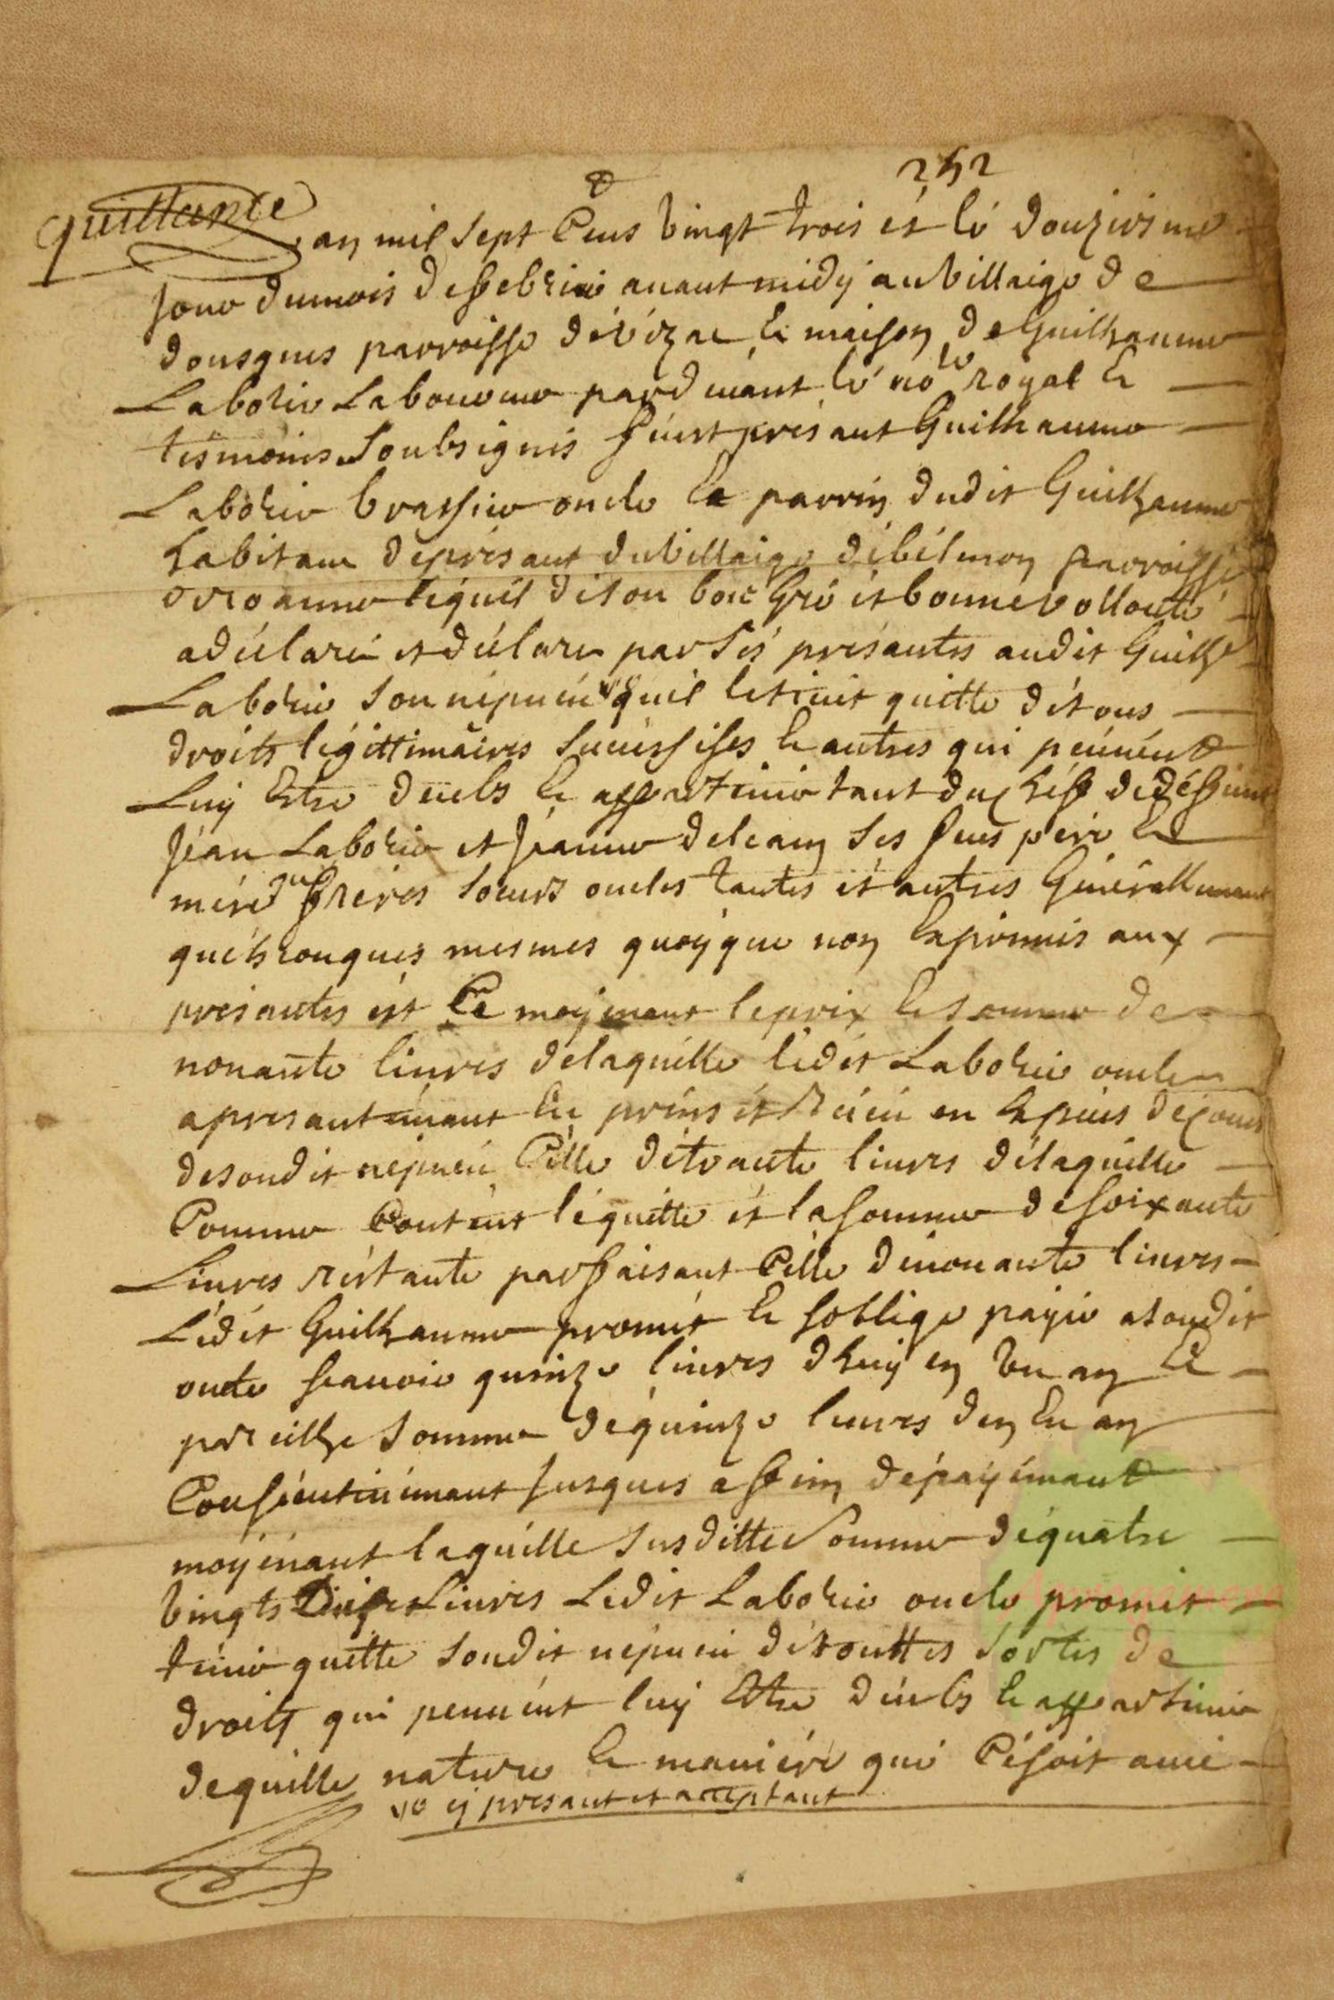 252
quittance
an mil sept Cens vingt trois et le douziesme
jour du mois de febrier avant midy au villaige de
dousques parroisse de vezac et maison de Guilhaume
Laborie Laboureur pardevant le nore royal et
tesmoins soubsignes feust presant Guilhaume
Laborie brassier oncle et parrin dudit Guilhaume
habitant de presant du villaige de belmon parroisse
lequel de son bon gre et bonne vollonte
a declare et declare par ses presantes audit Guilhe
Laborie son nepueu quil le tient quitte de tous
droits legittimaires sucessifs et autres qui peuuent
luy estre deubs et appartenir tant du cheff de deffunt
jean Laborie et jeanne delcam ses feus pere et
mere freres soeurs oncles tantes et autres Generallemant
quelsconques mesmes quoyque non Exprimes aux
presantes est Ce moyenant le prix et somme de
nonante liures de laquelle ledit Laborie oncle
a presantemant en prins et Receu en Especes de cours
de sondit nepueu Celle de trante liures de laquelle
Comme Contant le quitte et la somme de soixante
Liures restante parfaisant Celle de nonante liures
Ledit Guilhaume promet et soblige payer a sondit
oncle scauoir quinze liures dhuy en vn an et
pareilhe somme de quinze liures dan En an
Consecutiuemant jusques a ffin de payemant
moyenant laquelle susditte somme de quatre
vingts Dix Liures Ledit Laborie oncle promet
tenir quitte sondit nepueu de touttes sortes de
droits qui peuuent luy Estre deubs et appartenir
de quelle nature et maniere que Ce soit
y presant et acceptant